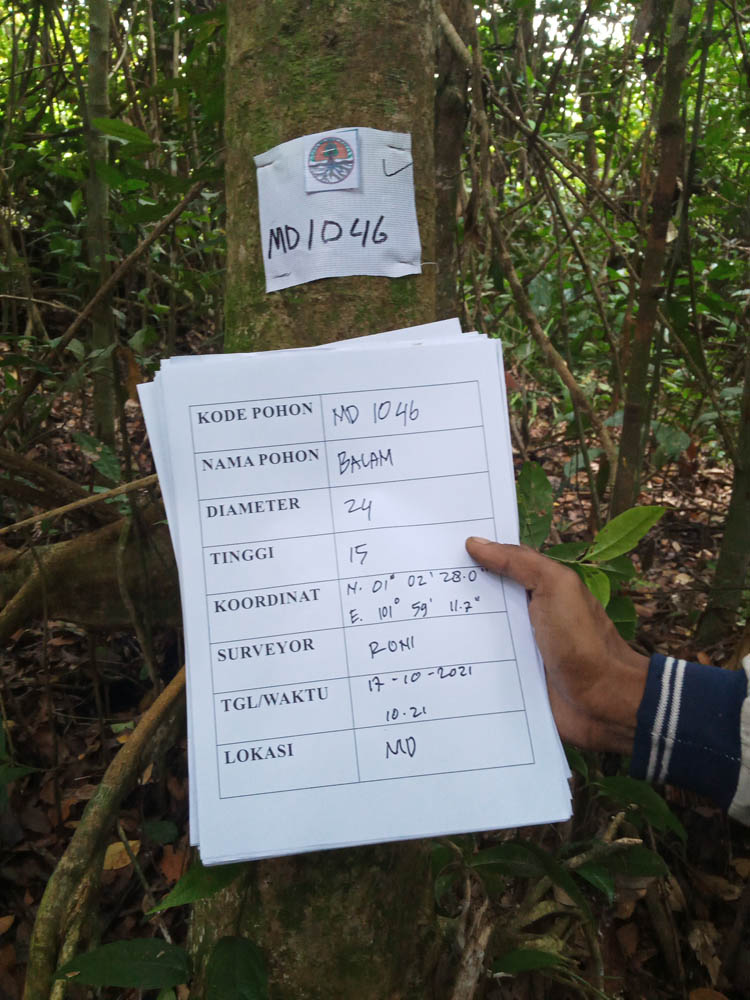 MD1046
KODE POHON MD 1046
NAMA POHON BALAM
DIAMETER 24
TINGGI 15
KOORDINAT N. 01° 02' 28.0"
E. 101° 59' 11.7"
SURVEYOR RONI
TGL/WAKTU 17-10-2021
10.21
LOKASI MD